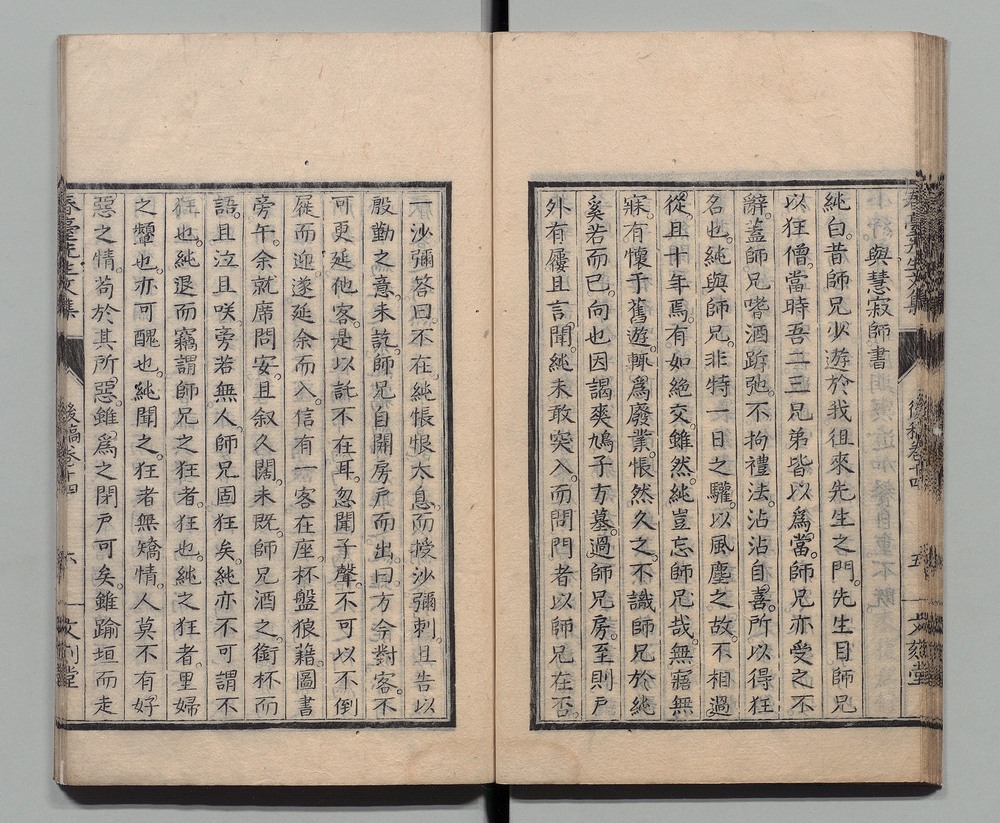 與慧寂師書
純白昔師兄少遊於我徂來先生之門先生目師兄
以狂僧當時吾二三兄弟皆以爲當師兄亦受之不
辭蓋師兄嗜酒跅弛不拘禮法沾沾自善所以得狂
名也純與師兄非特一日之驩以風塵之故不相過
從且十年焉有如絕交雖然純豈忘師兄哉無寤無
寐有懷于舊遊輒爲廢業悵然久之不識師兄於純
奚若而已向也因謁爽鳩子方墓過師兄房至則戶
外有屨且言聞純未敢突入而問門者以師兄在否
春臺先生文集
後稿卷十四
五
文刻堂
一沙彌答曰不在純悵恨太息而授沙彌刺且告以
殷勤之意未說師兄自開房戶而出曰方今對客不
可更延他客是以託不在耳忽聞子聲不可以不倒
屣而迎遂延余而入信有一客在座杯盤狼藉圖書
旁午余就席問安且叙久闊未既師兄酒之銜杯而
語且泣且咲旁若無人師兄固狂矣純亦不可謂不
狂也純退而竊謂師兄之狂者狂也純之狂者里婦
之顰也亦可醜也純聞之狂者無矯情人莫不有好
惡之情苟於其所惡雖爲之閉戶可矣雖踰垣而走
春臺先生文集
後稿卷十四
六
文刻堂